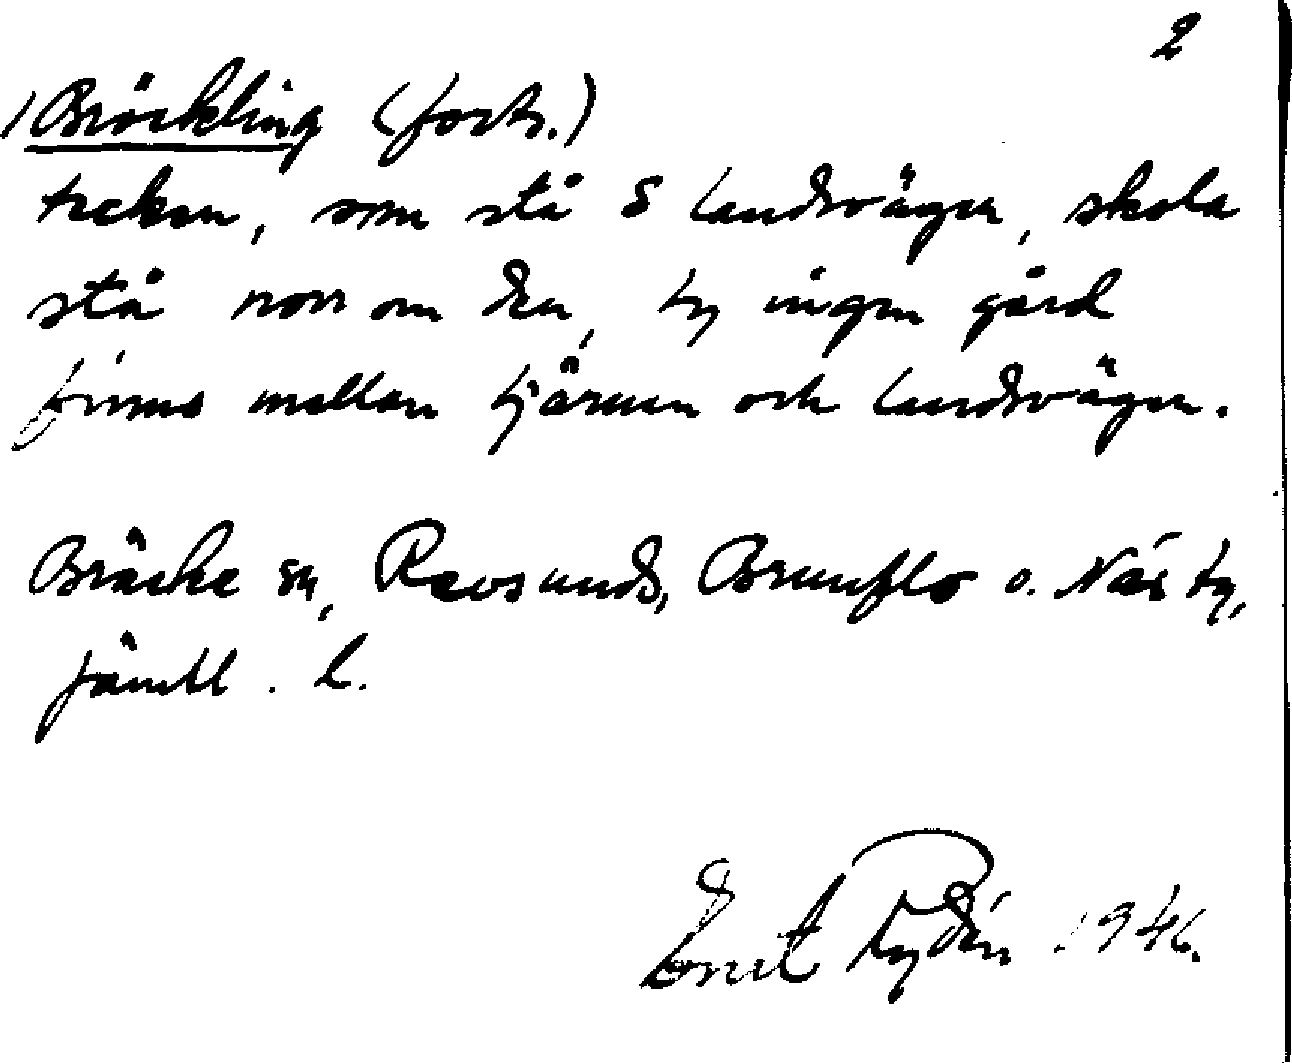 2
Bröckling (forts.)
tecken, som stå S landsvägen, skola
stå norr om den, ty ingen gård
finns mellan tjärnen och landsvägen.
Bräcke sn, Revsunds, Brunflo o. Näs tg,
Jämtl. l.
Ernst Rydén 1946.